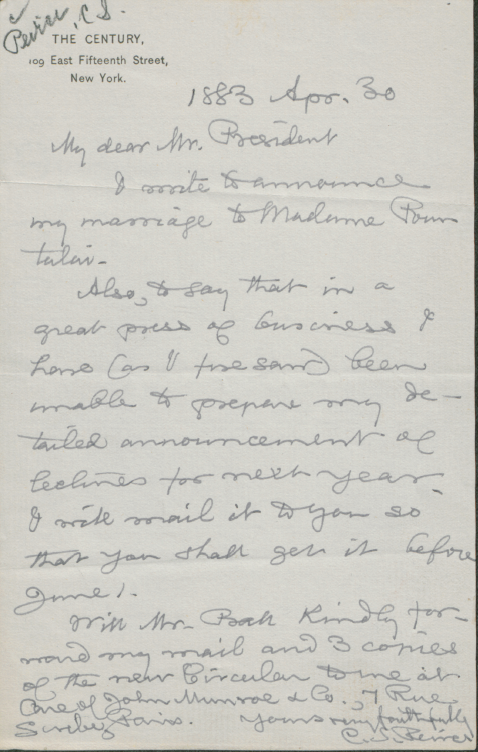 Peirce, C.S.
THE CENTURY,
109 East Fifteenth Street,
New York.
1883 Apr. 30
My dear Mr. President
I write to announce
my marriage to Madame Pour
talai-
Also, to say that in a
great press of business I
have (as I foresaw) been
unable to prepare my de-
tailed announcement of
lectures for next year.
I will mail it to you so
that you shall get it before
June 1.
Will Mr. Ball kindly for-
ward my mail and 3 copies
of the new Circular to me at
Care of John Munroe & Co., 7 Rue
Scribe, Paris. Yours very faithfully
C.S. Peirce